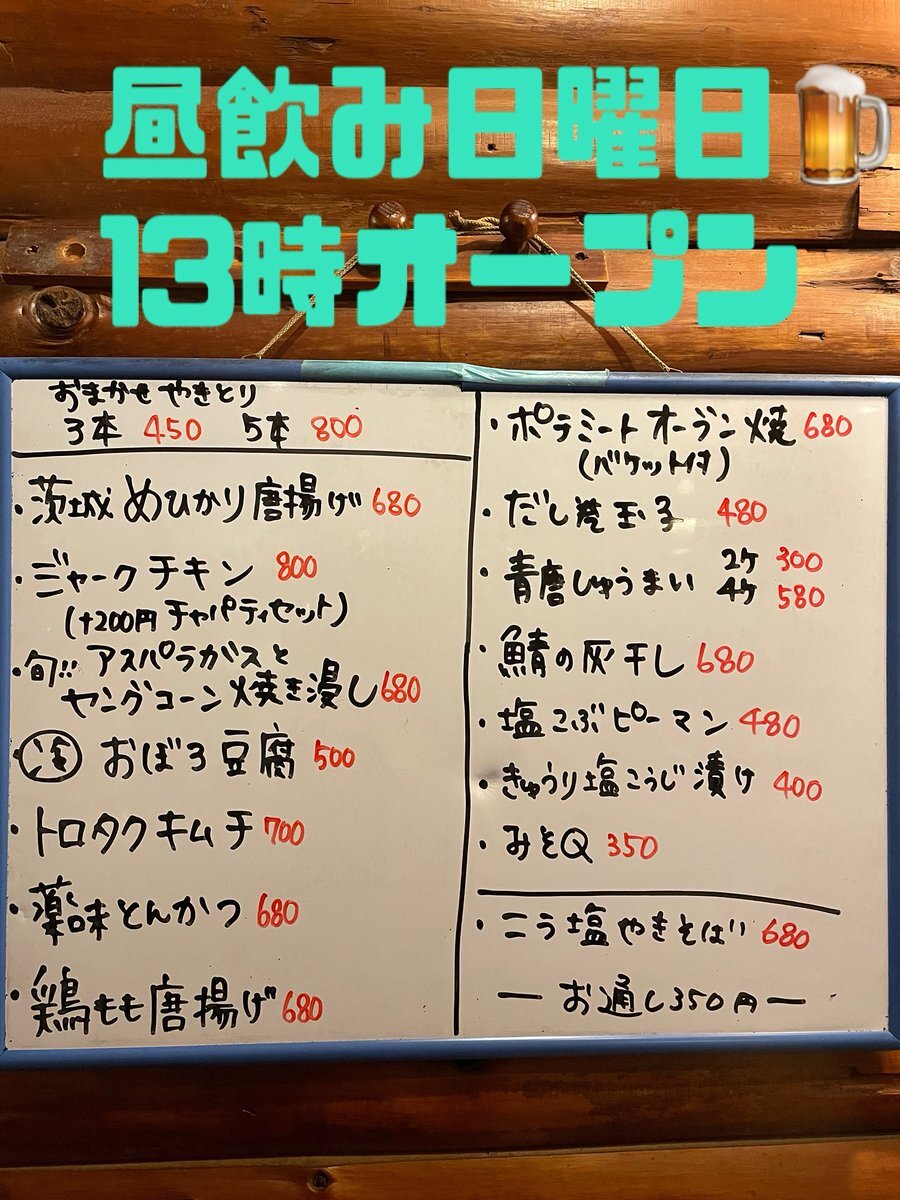 昼飲み日曜日
13時オープン
おまかせ やきとり
3本 450 5本 800
・茨城めひかり唐揚げ 680
・ジャークチキン 800
(+200円チャパティセット)
・旬!!! アスパラガスと
ヤングコーン焼き浸し 680
・冷 おぼろ豆腐 500
・トロタクキムチ 700
・薬味とんかつ 680
・鶏もも唐揚げ 680
・ポラミートオーブン焼 680
(バケット付)
・だし焼玉子 480
・青唐しゅうまい 2ケ 300
4ケ 580
・鯖の灰干し 680
・塩こぶピーマン 480
・きゅうり塩こうじ漬け 400
・みそQ 350
・ニラ塩やきそば 680
ー お通し350円 ー